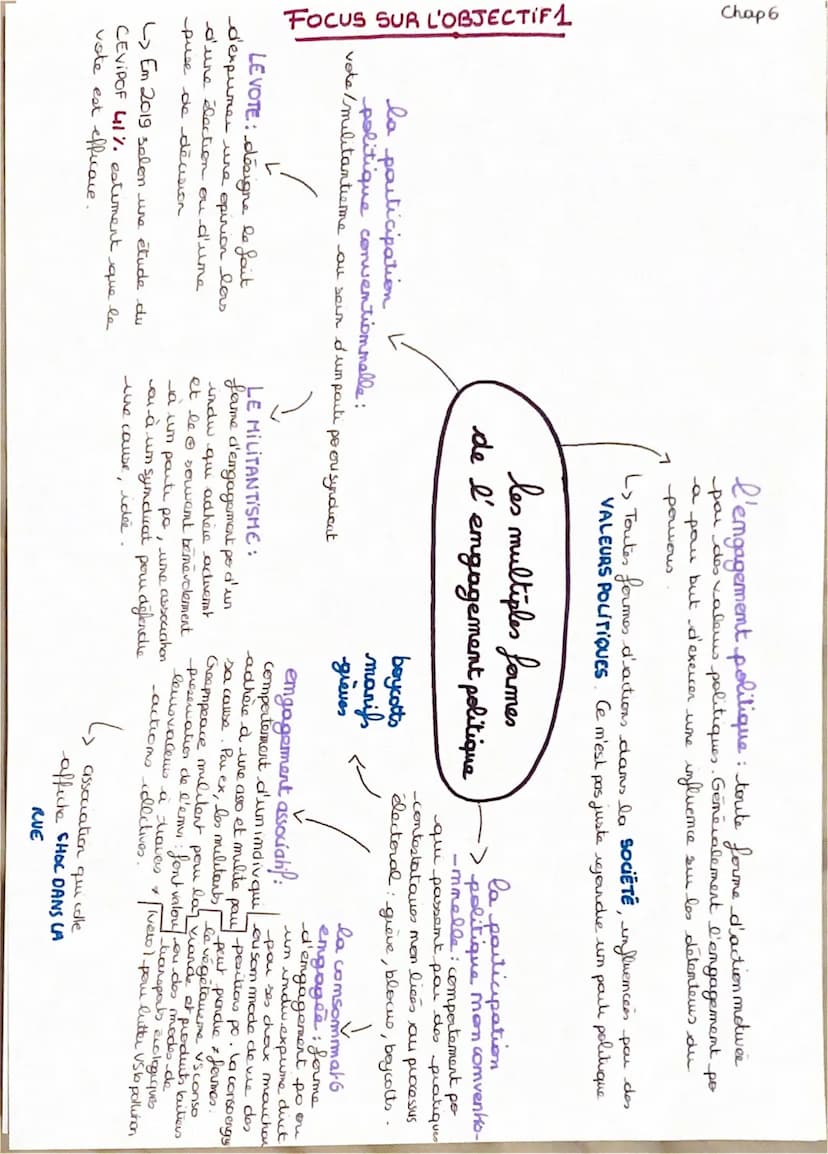 Chap 6
FOCUS SUR L'OBJECTIF 1
l'engagement politique : toute forme d'action motivée
par des valeurs politiques. Généralement l'engagement po
a pour but d'exercer une influence sur les détenteurs du
pouvoir.
↳ Toutes formes d'actions dans la SOCIÉTÉ, influencées par des
VALEURS POLITIQUES. Ce n'est pas juste rejoindre un parti politique
les multiples formes
de l'engagement politique
la participation
politique conventionnelle :
vote/militantisme au sein d'un parti po ou syndicat
LE VOTE : désigne le fait
d'exprimer une opinion lors
d'une élection ou d'une
prise de décision
↳ En 2019 selon une étude du
CEVIPOF 41% estiment que le
vote est efficace.
LE MILITANTISME :
forme d'engagement po d'un
indiv qui adhère activemt
et le ⊕ souvent bénévolement
à un parti po, une association
ou à un syndicat pour défendre
une cause, idée.
la participation
politique non conventio-
nnelle : comportement po
qui passent par des pratiques
contestataires non liées au processus
électoral : grève, blocus, boycotts.
boycotts
manifs
grèves
engagement associatif :
comportement d'un indiv qui
adhère à une asso et milite pour
sa cause. Par ex, les militants
Greenpeace militent pour la
préservation de l'env : font valoir
leurs valeurs à travers ≠
actions collectives.
↳ association qui colle
affiche CHOC DANS LA
RUE
la consommat°
engagée : forme
d'engagement po où
un indiv exprime dirct
par ses choix marchan
ou son mode de vie des
positions po. La conso engg
peut prendre ≠ formes.
le végétarisme VS conso
viande et produits laitiers
ou des modes de
transports écologiques
(vélo) pour lutter VS la pollution